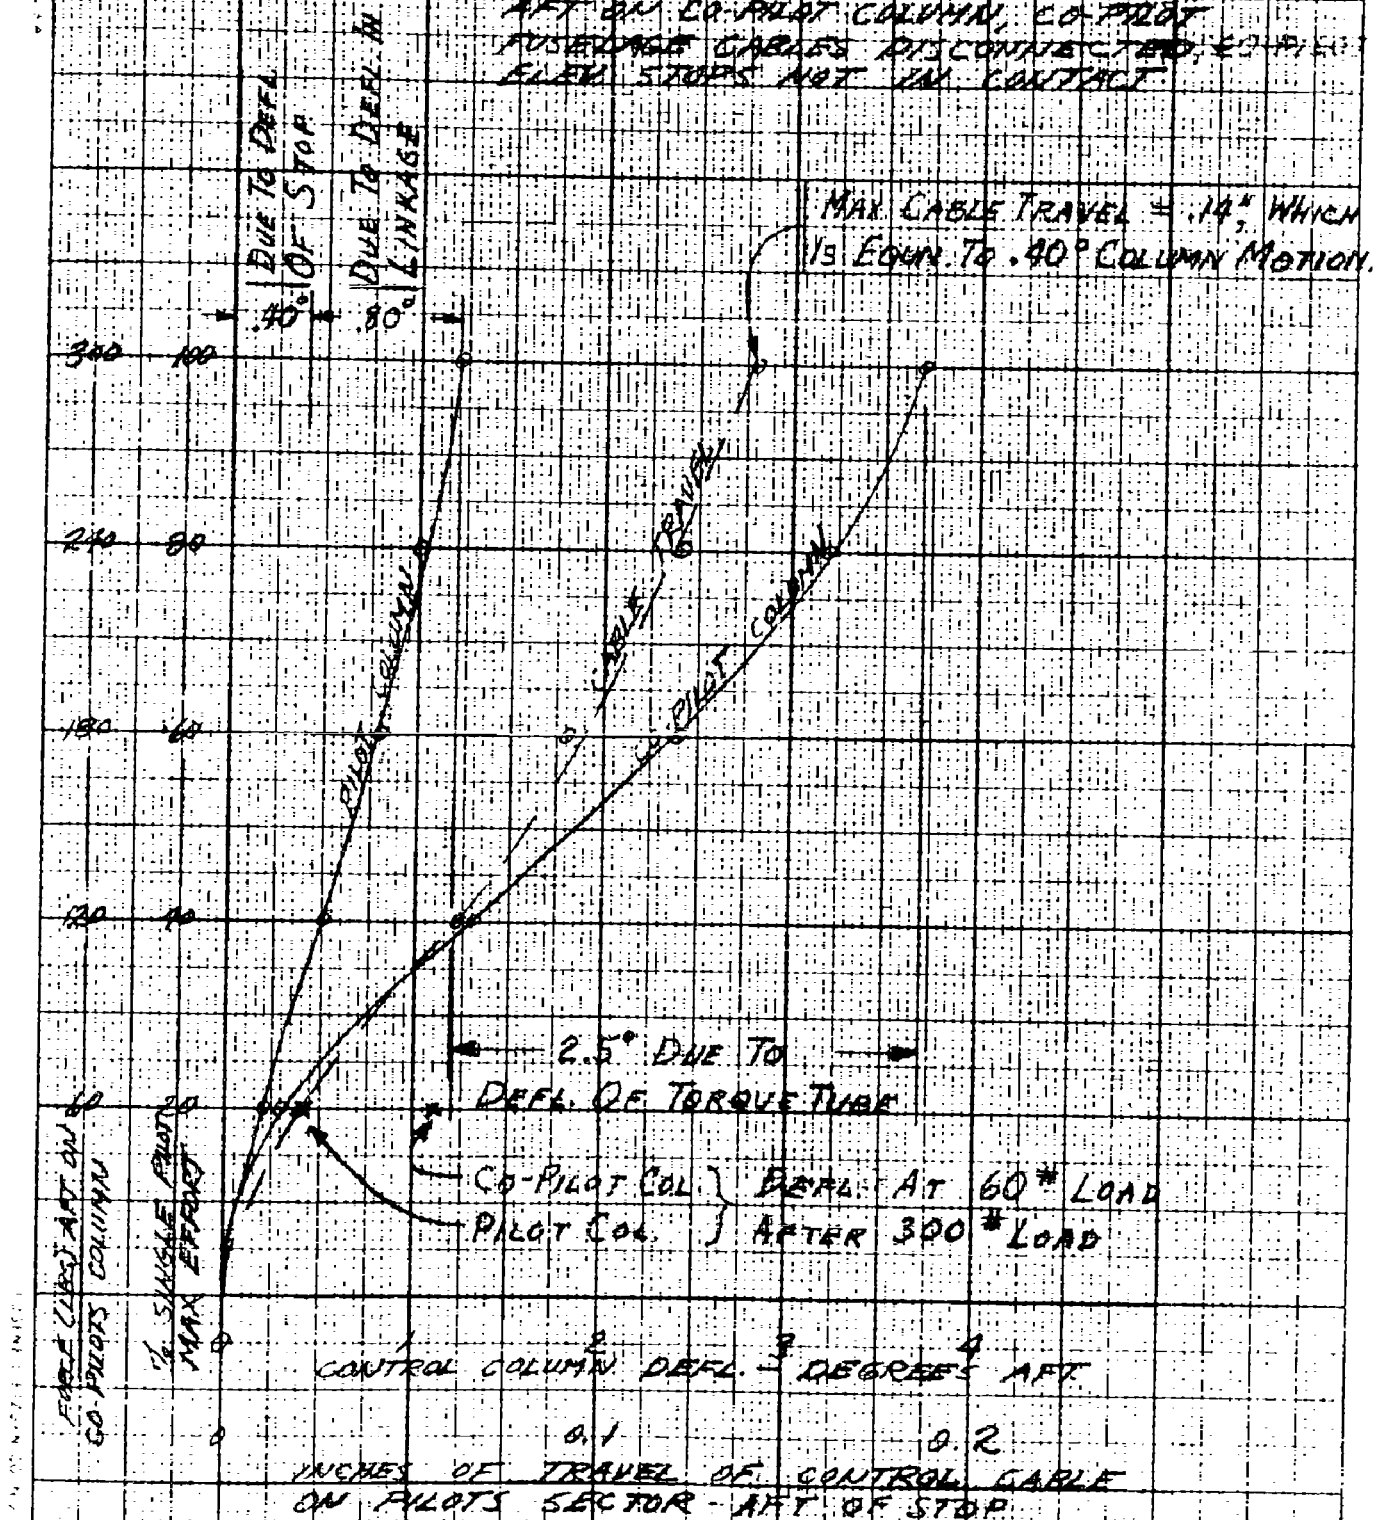 AFT ON CO-PILOT COLUMN, CO-PILOT
FUSELAGE CABLES DISCONNECTED,
ELEV STOPS NOT IN CONTACT
DUE TO DEFL
OF STOP
DUE TO DEFL IN
LINKAGE
MAX CABLE TRAVEL = .14", WHICH
IS EQUIV. TO .40° COLUMN MOTION.
.40° .80°
300 100
240 80
180 60
120 40
60 20
PILOT COLUMN
CABLE TRAVEL
CO-PILOT COLUMN
2.5° DUE TO
DEFL. OF TORQUE TUBE
CO-PILOT COL. } DEFL. AT 60# LOAD
PILOT COL. } AFTER 300# LOAD
FORCE (LBS) AFT ON
CO-PILOTS COLUMN
% SINGLE PILOT
MAX EFFORT
0 1 2 3 4
CONTROL COLUMN DEFL. - DEGREES AFT
0 0.1 0.2
INCHES OF TRAVEL OF CONTROL CABLE
ON PILOTS SECTOR - AFT OF STOP